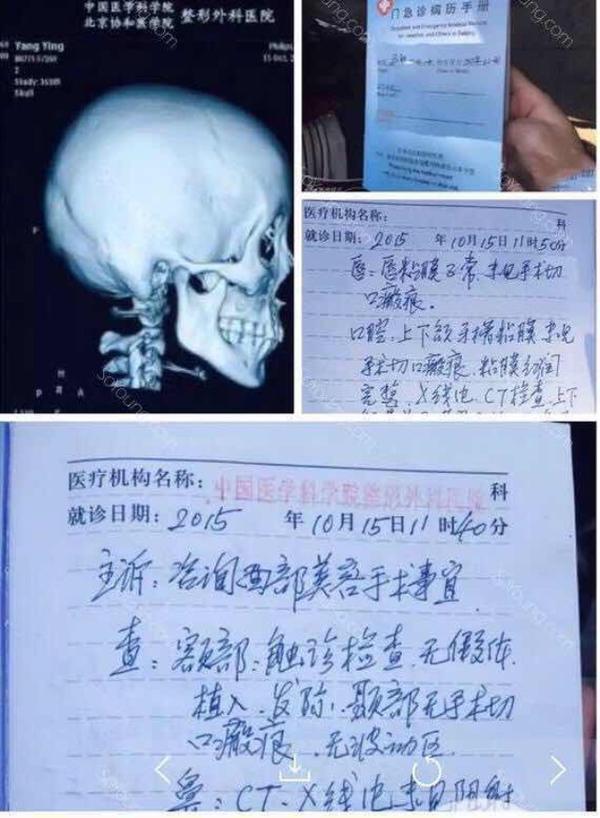 中国医学科学院
北京协和医学院
整形外科医院
Yang Ying
2
Skull
门急诊病历手册
医疗机构名称:
科
就诊日期: 2015 年10月15日11时50分
唇:唇粘膜正常,未见手术切
口瘢痕.
口腔:上下颌牙槽粘膜未见
手术切口瘢痕.粘膜红润
完整.X线也CT检查上下
医疗机构名称:
中国医学科学院整形外科医院
科
就诊日期: 2015 年10月15日11时40分
主诉:咨询面部美容手术事宜
查:额部:触诊检查.无假体
植入.发际.颞部无手术切
口瘢痕.无波动区.
鼻:CT、X线也未见阻射